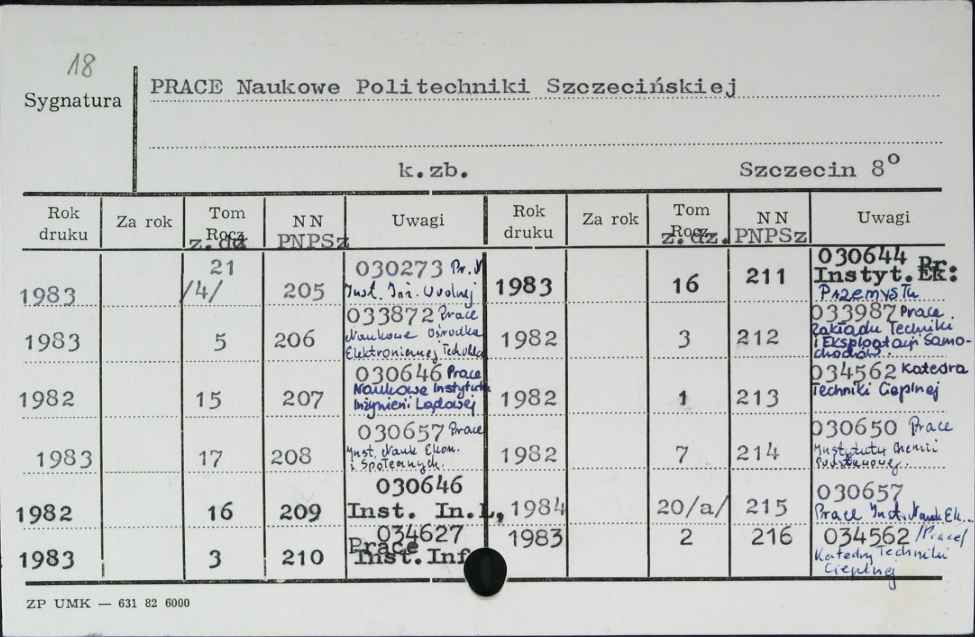 18
Sygnatura
PRACE Naukowe Politechniki Szczecińskiej
k.zb. Szczecin 8°
Rok druku Za rok Tom Rocz. z.dz NN PNPSz Uwagi Rok druku Za rok Tom Rocz. z.dz. NN PNPSz Uwagi
1983 21 /4/ 205 030273 Pr. N
Inst. Inż. Wodnej
1983 16 211 030644 Pr.
Instyt. Ek:
Przemysłu
1983 5 206 033872 Prace
Naukowe Ośrodka
Elektronicznej
1982 3 212 033987 Prace
Zakładu Techniki
i Eksploatacji Samo-
chodów.
1982 15 207 030646 Prace
Naukowe Instytutu
Inżynierii Lądowej
1982 1 213 034562 Katedra
Techniki Cieplnej
1983 17 208 030657 Prace
Inst. Nauk Ekon.
i Społecznych.
1982 7 214 030650 Prace
Instytutu Chemii
Podstawowej.
1982 16 209 030646
Inst. In.L,
1984 20/a/ 215 030657
Prace Inst. Nauk Ek..
1983 3 210 034627
Prace
Inst.Inf
1983 2 216 034562 /Prace/
Katedry Techniki
Cieplnej
ZP UMK — 631 82 6000